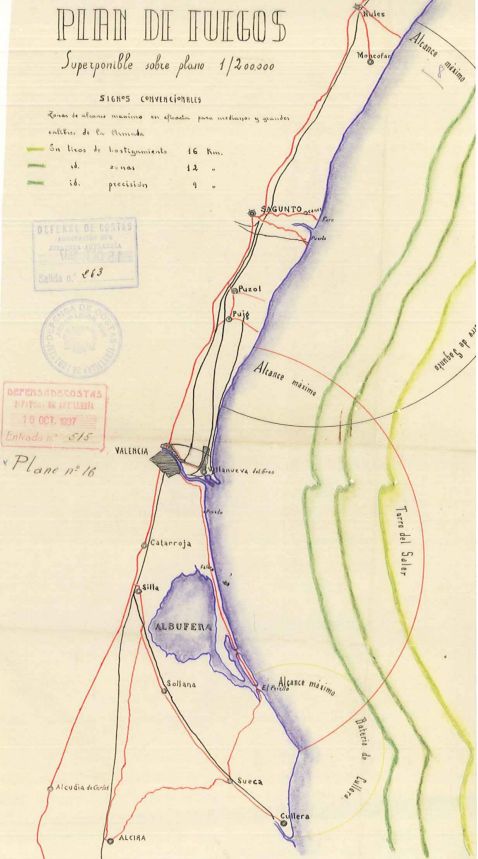 PLAN DE FUEGOS
Superponible sobre plano 1/200.000
SIGNOS CONVENCIONALES
Zonas de alcance maximo en eficacia para medianos y grandes
calibres de la Armada
En tiros de hostigamiento 16 Km.
id. zonas 12 "
id. precisión 9 "
DEFENSA DE COSTAS
Salida n.° 263
DEFENSA DE COSTAS
DEFENSA DE COSTAS
15 OCT. 1937
Entrada n.° 515
Plano nº 16
Nules
Moncofar
Alcance máximo
8
SAGUNTO
Faro
Puerto
Puzol
Puig
de Sagunto
Alcance máximo
VALENCIA
Villanueva del Grao
Pinedo
Catarroja
Torre del Saler
Silla
Saler
ALBUFERA
Sollana
El Perelló
Alcance máximo
Bateria de Cullera
Sueca
Alcudia de Carlet
Cullera
ALCIRA